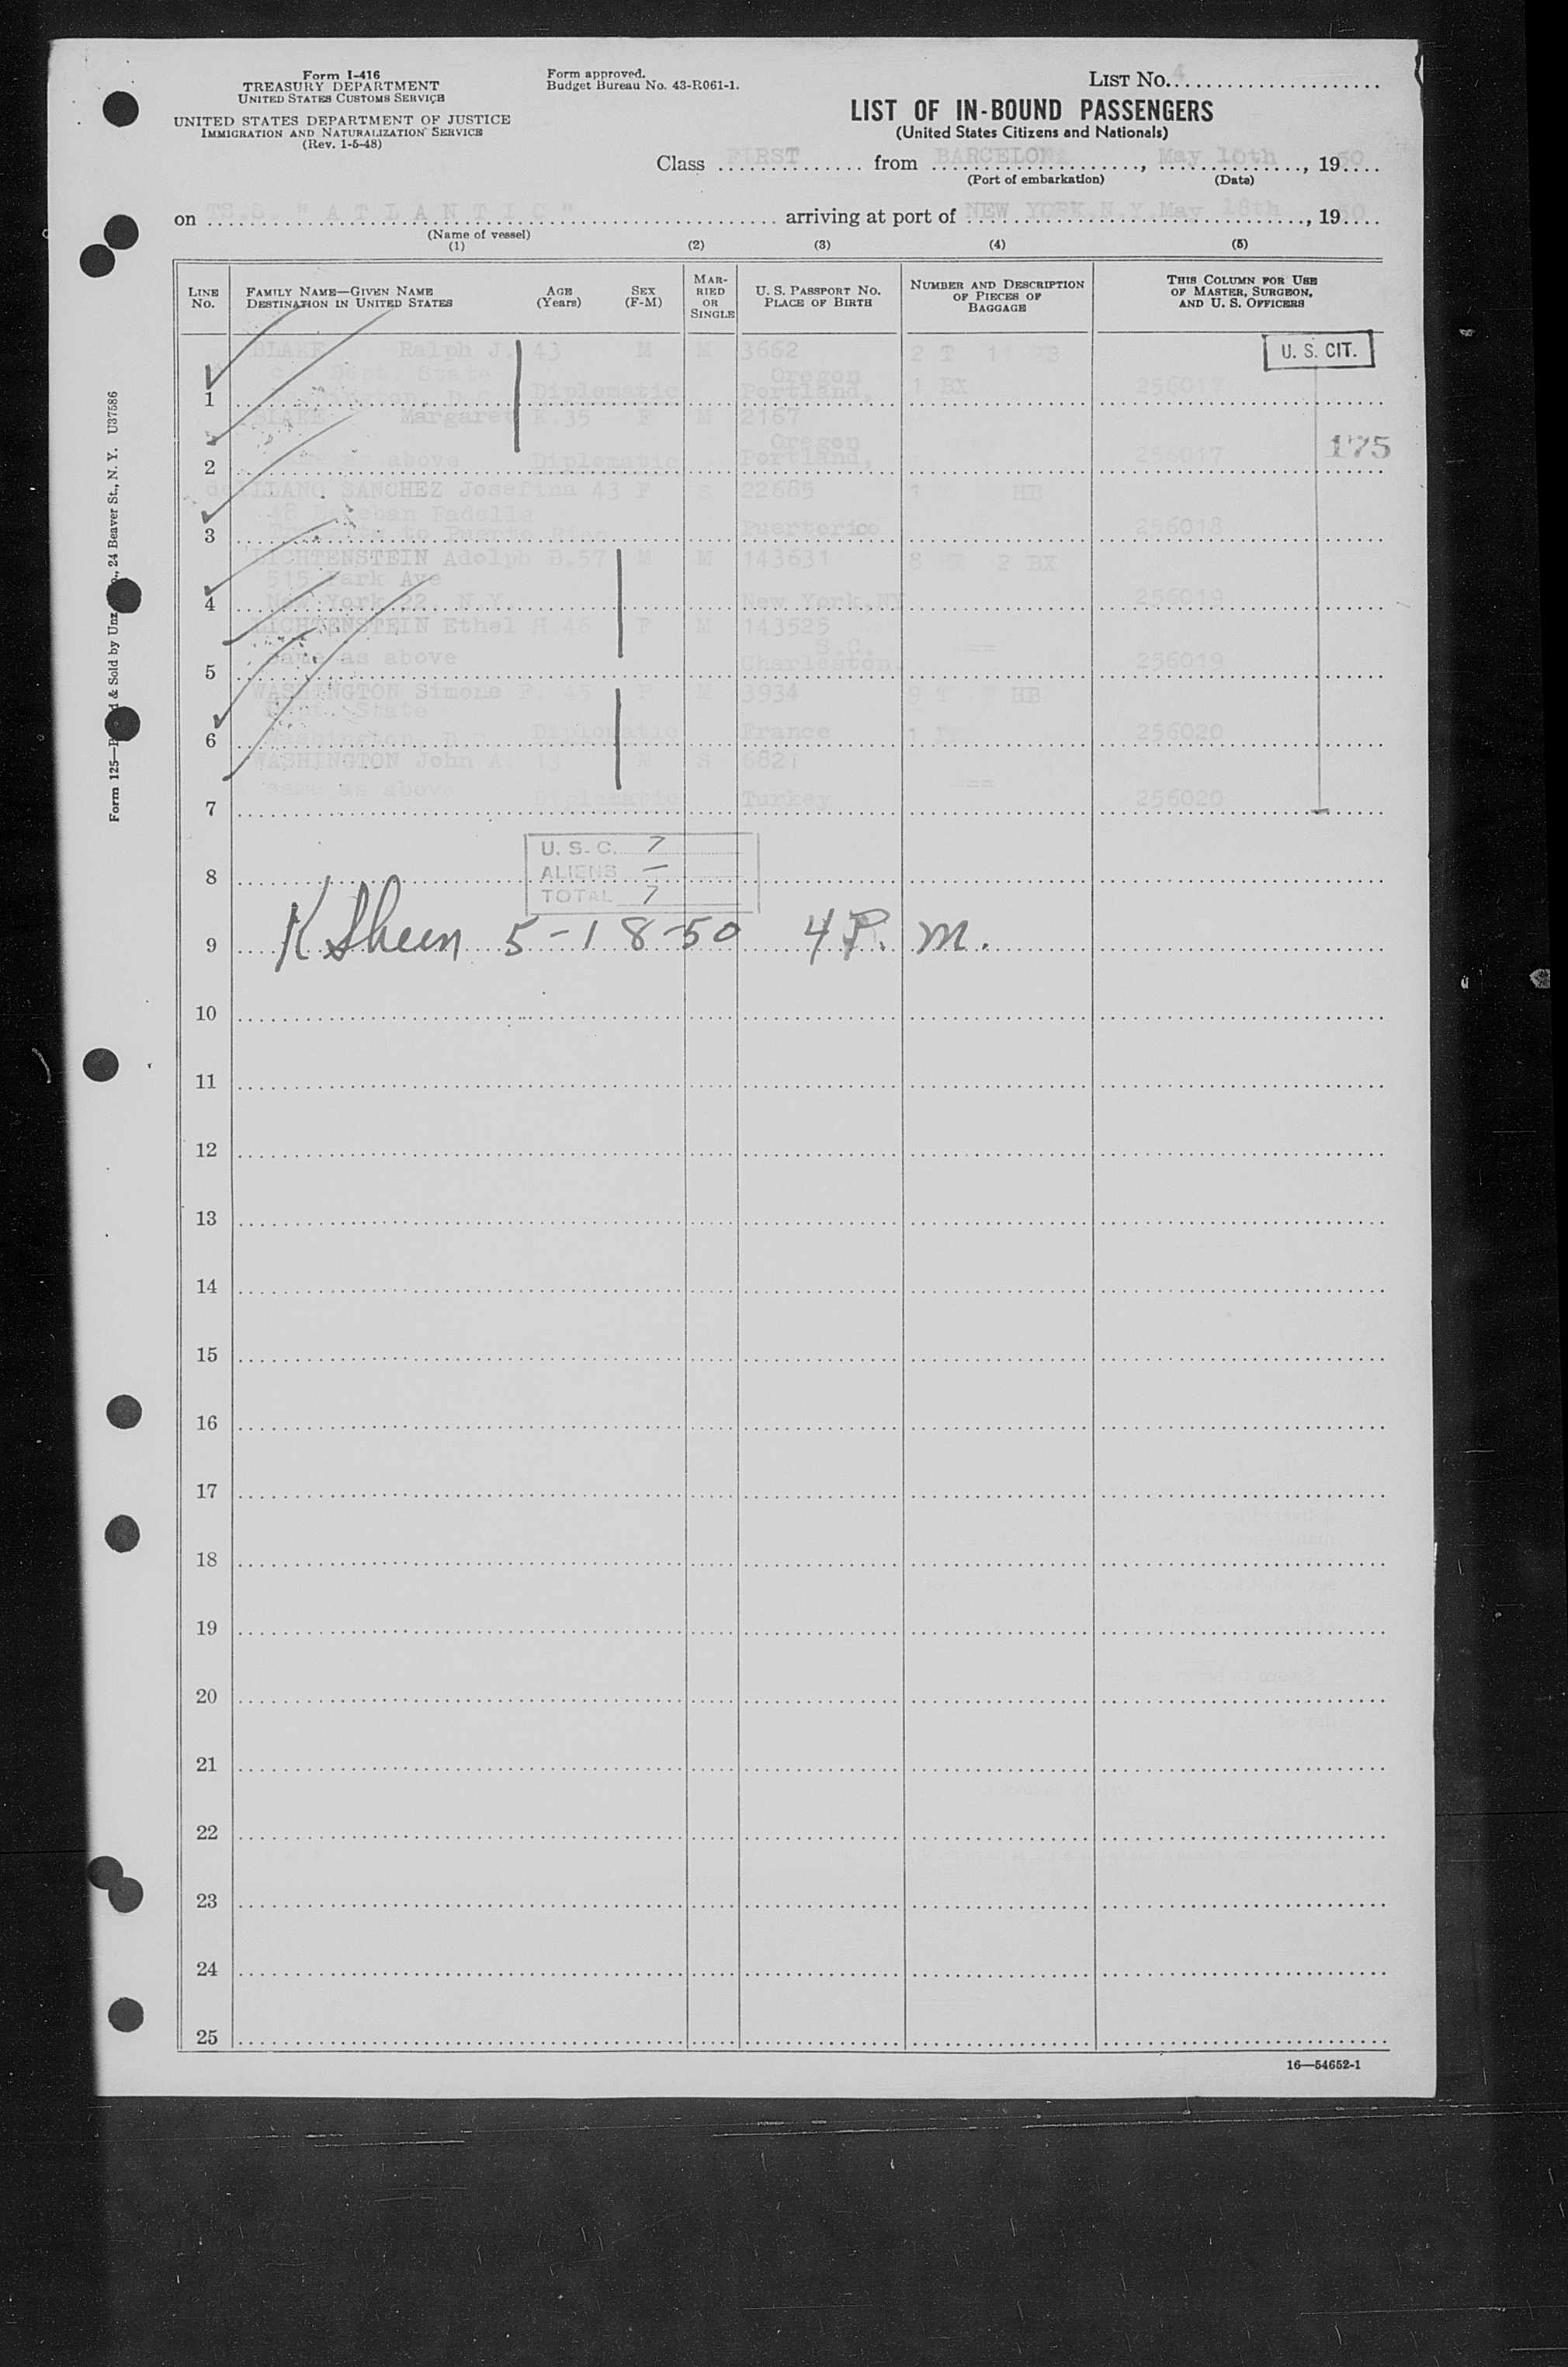 Form I-416
TREASURY DEPARTMENT
UNITED STATES CUSTOMS SERVICE
UNITED STATES DEPARTMENT OF JUSTICE
IMMIGRATION AND NATURALIZATION SERVICE
(Rev. 1-5-48)
Form approved.
Budget Bureau No. 43-R061-1.
LIST No. 4
LIST OF IN-BOUND PASSENGERS
(United States Citizens and Nationals)
Class FIRST from BARCELONA, May 10th, 1950
(Port of embarkation) (Date)
on TS.S. "ATLANTIC" arriving at port of NEW YORK,N.Y. May 18th, 1950
(Name of vessel)
(1) (2) (3) (4) (5)
LINE No. FAMILY NAME—GIVEN NAME DESTINATION IN UNITED STATES AGE (Years) SEX (F-M) MARRIED OR SINGLE U. S. PASSPORT No. PLACE OF BIRTH NUMBER AND DESCRIPTION OF PIECES OF BAGGAGE THIS COLUMN FOR USE OF MASTER, SURGEON, AND U. S. OFFICERS
BLAKE Ralph J. 43 M M 3662 2 T 11 HB U. S. CIT.
Dept. State Oregon
1 Washington, D.C. Diplomatic Portland, 1 BX 256017
BLAKE Margaret K. 35 F M 2167
Oregon 175
2 same as above Diplomatic Portland, 256017
de LLANO SANCHEZ Josefina 43 F S 22685 1 HB
48 Padella
3 to Puerto Rico Puertorico 256018
LICHTENSTEIN Adolph B. 57 M M 143631 8 2 BX
515 Park Ave
4 New York 22, N.Y. New York,NY 256019
LICHTENSTEIN Ethel H 46 F M 143525
S.C.
5 same as above Charleston, == 256019
WASHINGTON Simone F. 45 F M 3934 9 T HB
Dept. State
6 Washington, D. Diplomatic France 1 256020
WASHINGTON John A. 13 M S 6821
7 same as above Diplomatic Turkey == 256020
U. S. C. 7
8 ALIENS —
TOTAL 7
9 K Sheen 5-18-50 4 P. M.
10
11
12
13
14
15
16
17
18
19
20
21
22
23
24
25
16—54652-1
Form 125— & Sold by Unz Co., 24 Beaver St., N. Y. U37586